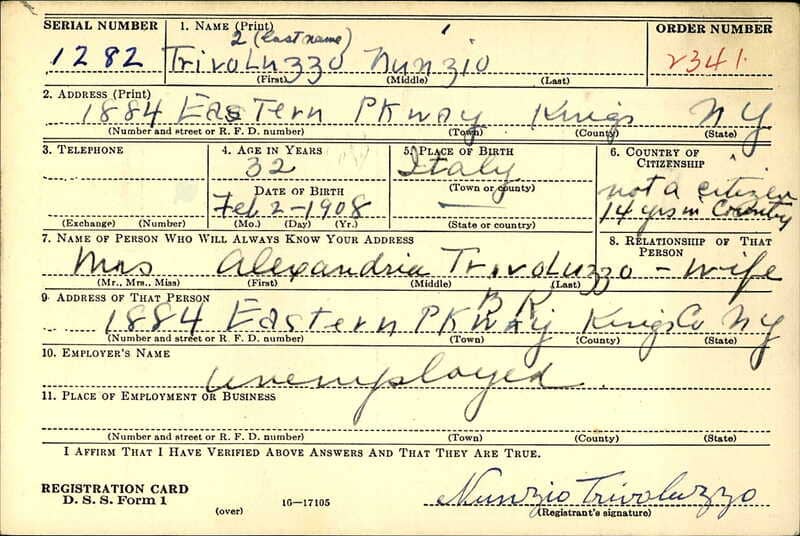 SERIAL NUMBER 1. NAME (Print) ORDER NUMBER
2 (last name) 1
1282 Trivoluzzo Nunzio 2341.
(First) (Middle) (Last)
2. ADDRESS (Print)
1884 Eastern PKway Kings NY
(Number and street or R. F. D. number) (Town) (County) (State)
3. TELEPHONE 4. AGE IN YEARS 5. PLACE OF BIRTH 6. COUNTRY OF CITIZENSHIP
32 Italy
DATE OF BIRTH (Town or county) not a citizen
Feb 2-1908 14 yrs in Country
(Exchange) (Number) (Mo.) (Day) (Yr.) (State or country)
7. NAME OF PERSON WHO WILL ALWAYS KNOW YOUR ADDRESS 8. RELATIONSHIP OF THAT PERSON
Mrs Alexandria Trivoluzzo - wife
(Mr., Mrs., Miss) (First) (Middle) (Last)
9. ADDRESS OF THAT PERSON BK
1884 Eastern PKway Kings Co NY
(Number and street or R. F. D. number) (Town) (County) (State)
10. EMPLOYER'S NAME
unemployed.
11. PLACE OF EMPLOYMENT OR BUSINESS
(Number and street or R. F. D. number) (Town) (County) (State)
I AFFIRM THAT I HAVE VERIFIED ABOVE ANSWERS AND THAT THEY ARE TRUE.
REGISTRATION CARD
D. S. S. Form 1 16-17105 Nunzio Trivoluzzo
(over) (Registrant's signature)